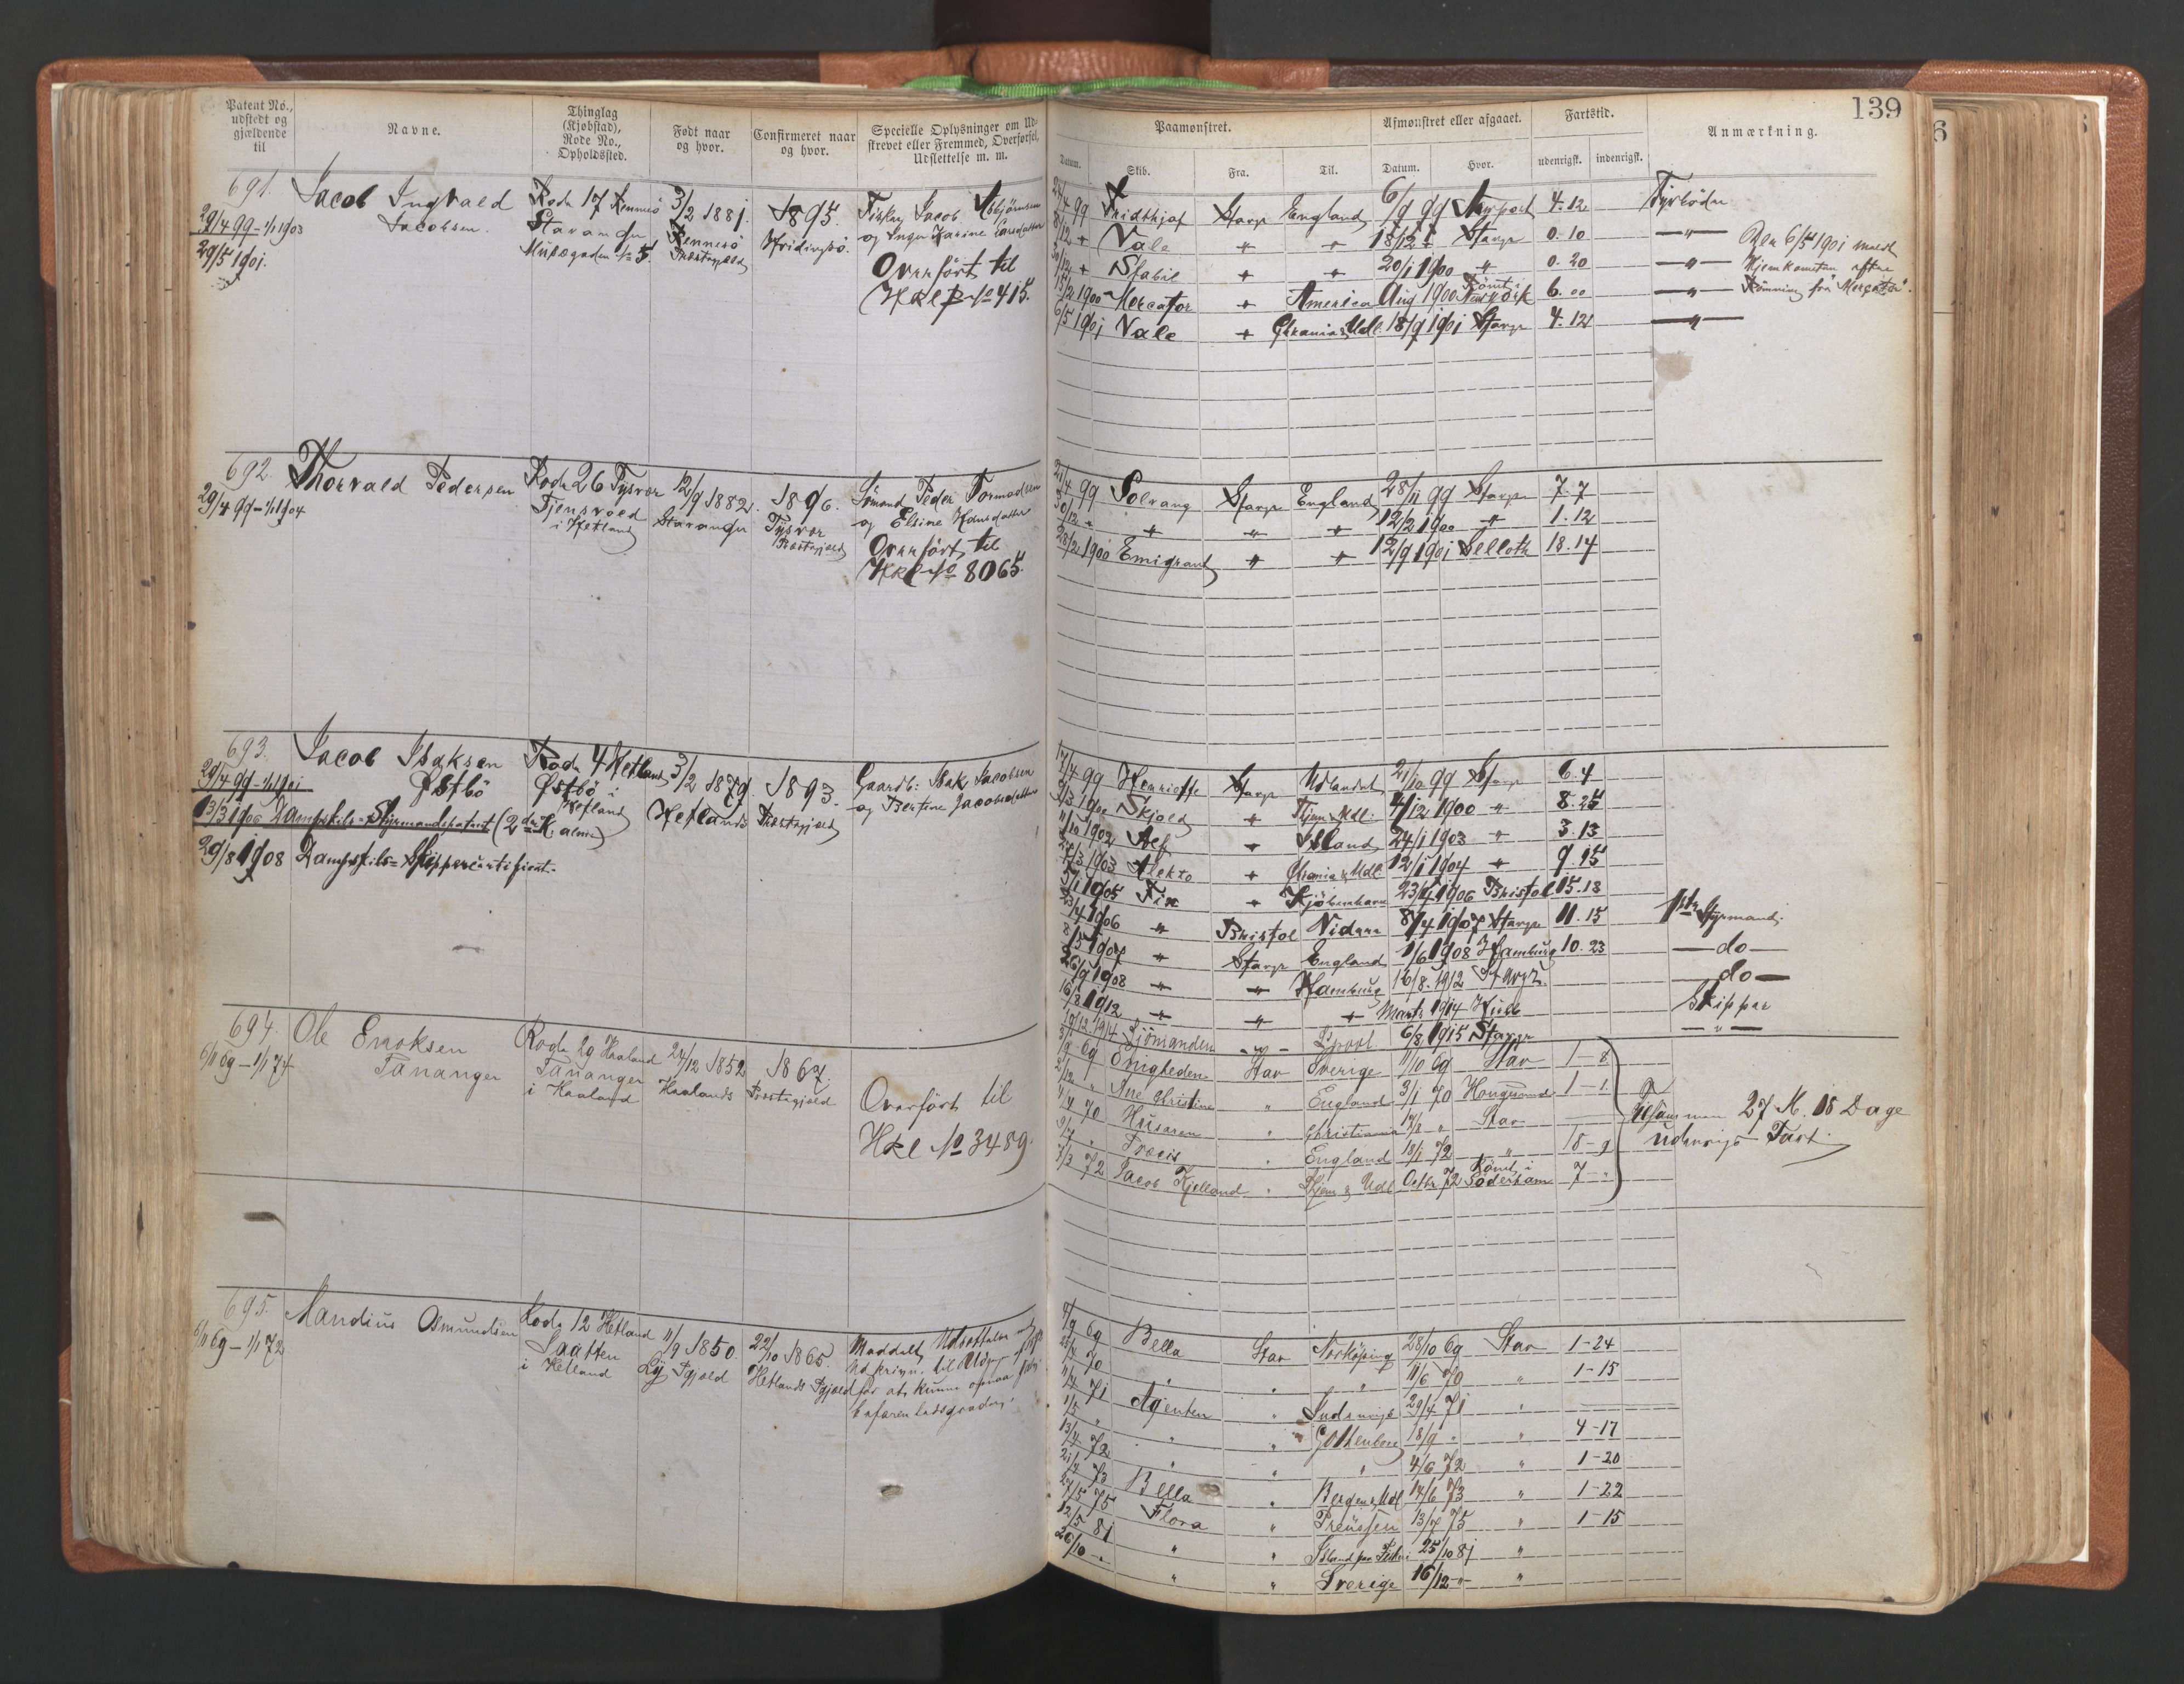 139
Patent No., udstedt og gjældende til
Navne.
Thinglag (Kjøbstad), Rode No., Opholdssted.
Født naar og hvor.
Confirmeret naar og hvor.
Specielle Oplysninger om Udstrevet eller Fremmed, Overførsel, Udslettelse m. m.
Paamønstret.
Afmønstret eller afgaaet.
Fartstid.
Anmærkning.
Datum.
Skib.
Fra.
Til.
Datum.
Hvor.
udenrigsk.
indenrigsk.
691.
29/4 99 - 1/1 1903
29/5 1901.
Jacob Ingvald
Jacobsen.
Rode 17 Rennesö
Stavanger
3/2 1881.
Rennesö
Præstegjeld
1895.
Hvidingsö.
Fisker Jacob Asbjörnsen
Overfört til
Hkl No 415.
99 Fridthjof Stavgr England 6/9 99 Nyport 4.12 Fyrböder
8/12 " Vale " " 18/12 " Stavgr 0.10 "
Stabil " " 20/1 1900 " 0.20 "
1900 Mercator " America Aug 1900 Römt i New York 6.00 "
6/5 1901 Vale " Chrania & Udl 18/9 1901 Stavgr 4.12 "
Den 6/5 1901 meldt
Hjemkommen efter
Römning fra "Mercator".
692.
29/4 99 - 1/1 1904
Thorvald Pedersen
Rode 26 Tysvær
Tjensvold
i Hetland
12/9 1882.
Stavanger
1896.
Tysvær
Præstegjeld
Sömand Peder Tormodsen
og Elsine Hansdatter
Overfört til
Hkl No 8065.
99 Solvang Stavgr England 28/11 99 Stavgr 7.7
30/12 " " " " 12/2 1900 " 1.12
1900 Emigrant " " 12/9 1901 Silloth 18.14
693.
29/4 99 - 1/1 1901
Jacob Isaksen
Østbö
Rode 4 Hetland
Østbö i
Hetland
3/2 1879.
Hetlands
1893.
Præstegjeld
Gaardb: Isak Jacobsen
og Bertine Jacobsdatter
13/3 1906 Dampskibs-Styrmandspatent (2den Kl. alm.)
29/8 1908 Dampskibs-Skippercertificat.
17/4 99 Henriette Stavgr Udlandet 21/10 99 Stavgr 6.4
1900 Skjold " Hjem & Udl. 4/12 1900 " 8.25
11/10 1902 Alf " Udland 24/1 1903 " 3.13
1903 Alekto " Chrania & Udl. 12/1 1904 " 9.15
1905 Fix " Kjöbenhavn 23/4 1906 Bristol 15.18
23/4 1906 " Bristol Vidare 8/4 1907 Stavgr 11.15 1ste Styrmand.
1907 " Stavgr England 1/6 1908 Hamburg 10.23 do
26/9 1908 " " Hamburg 16/8 1912 Stavgr. do
16/8 1912 " " " Marts 1914 Hull Skipper
10/12 1914 Sjömanden " Lpool 6/8 1915 Stavgr "
694.
6/11 69 - 1/1 74
Ole Enoksen
Tananger
Rode 29 Haaland
Tananger
i Haaland
24/12 1852
Haalands
1867
Præstegjeld
Overfört til
Hkl No 3489.
69 Enigheden Stav Sverige 11/10 69 Stav 1-8
2/12 " Ane Christine " England 3/1 70 Haugesund 1-1
70 Husaren " Christiania " Stav
Præcis " England 18/1 72 " 18-9
7/3 72 Jacob Kjelland " Hjem & Udl Octbr 72 Römt i Söderham 7-"
Tilsammen 27 M. 18 Dage
Udenrigs Fart.
695.
6/11 69 - 1/1 72
Mandius Osmundsen
Rode 12 Hetland
Saatten
i Hetland
11/9 1850.
Lÿ Pgjeld
22/10 1865.
Hetlands Pgjeld
for at kunne opnaa
befarenhedsgraden.
69 Bella Stav Norköping 28/10 69 Stav 1-24
70 " " " 11/6 70 " 1-15
71 Agenten " Indenrigs 29/4 71 "
1/5 " " " Gothenborg 18/9 " " 4-17
13/4 72 " " " 4/6 72 " 1-20
73 Bella " Bergen & Udl 14/6 73 " 1-22
27/5 75 Flora " Preussen 13/7 75 " 1-15
12/5 81 " " Island paa Fiskeri 25/10 81 "
26/10 " " " Sverige 16/12 " "